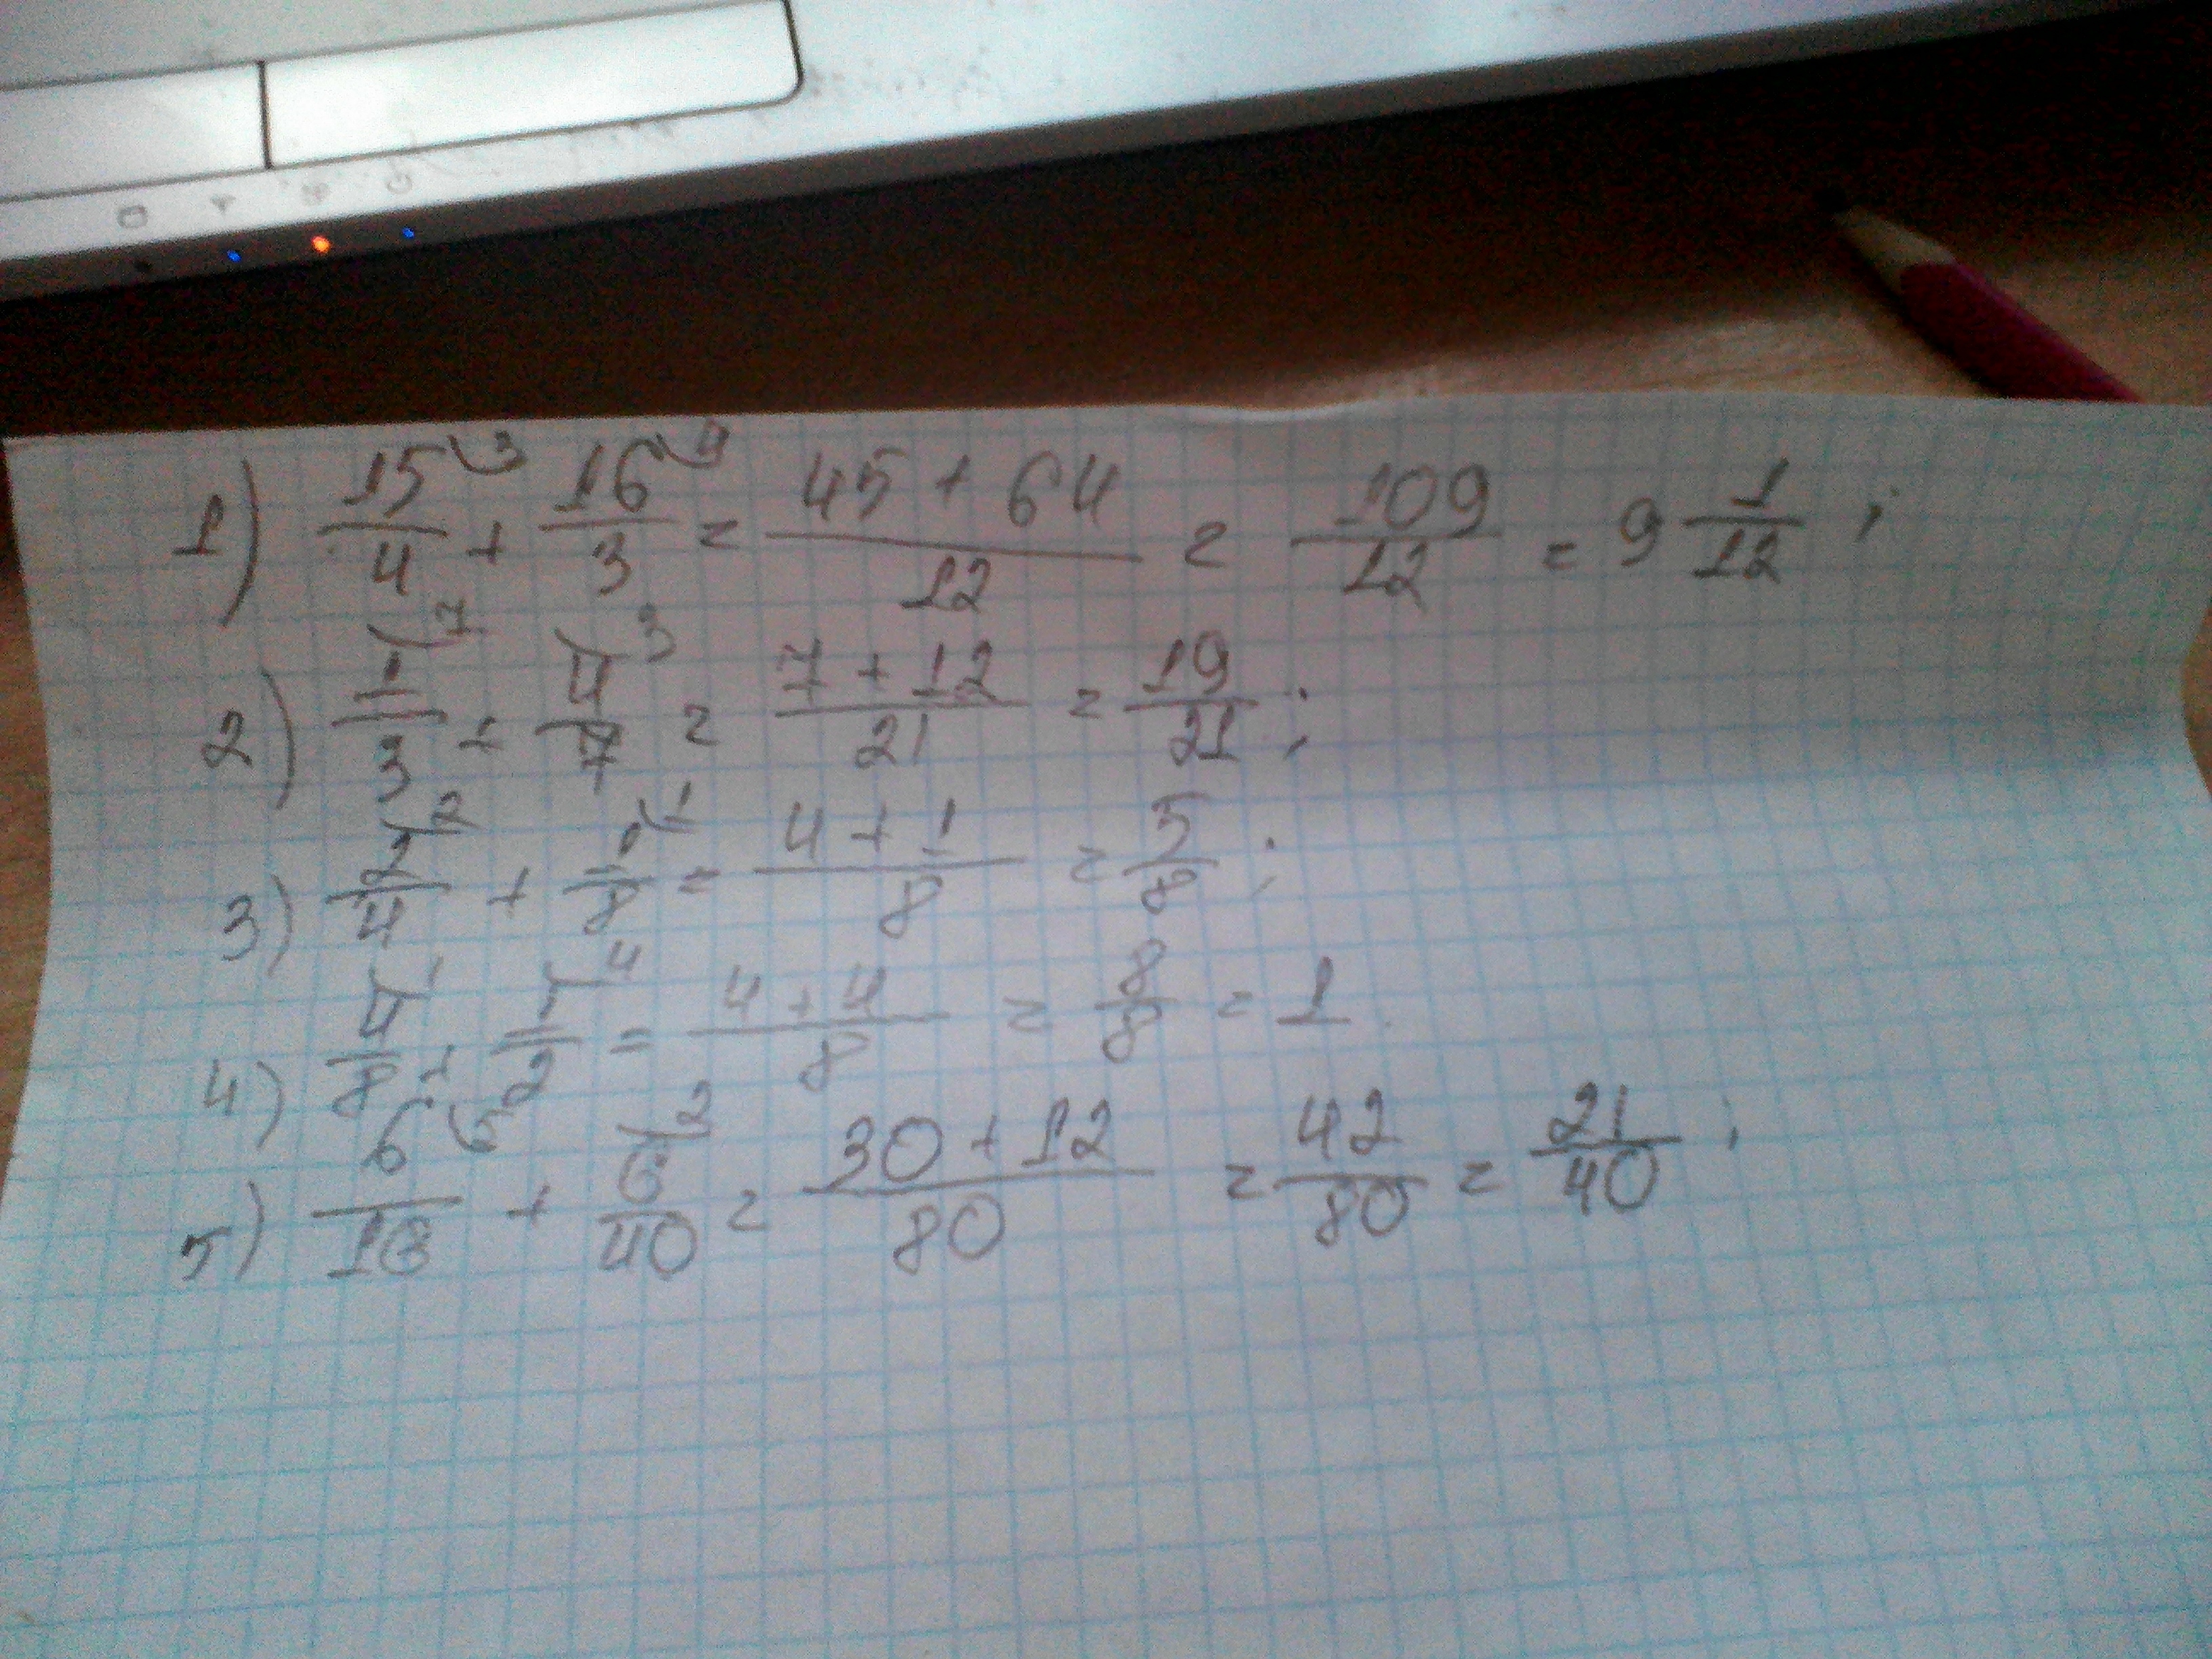 1) 15/4 ⁾³ + 16/3 ⁾⁴ = 45 + 64/12 = 109/12 = 9 1/12 ;
2) 1/3 ⁾⁷ + 4/7 ⁾³ = 7 + 12/21 = 19/21 ;
3) 2/4 ⁾² + 1/8 ⁾¹ = 4 + 1/8 = 5/8 ;
4) 4/8 ⁾¹ + 1/2 ⁾⁴ = 4 + 4/8 = 8/8 = 1
5) 6/16 ⁾⁵ + 6/40 ⁾² = 30 + 12/80 = 42/80 = 21/40 ;